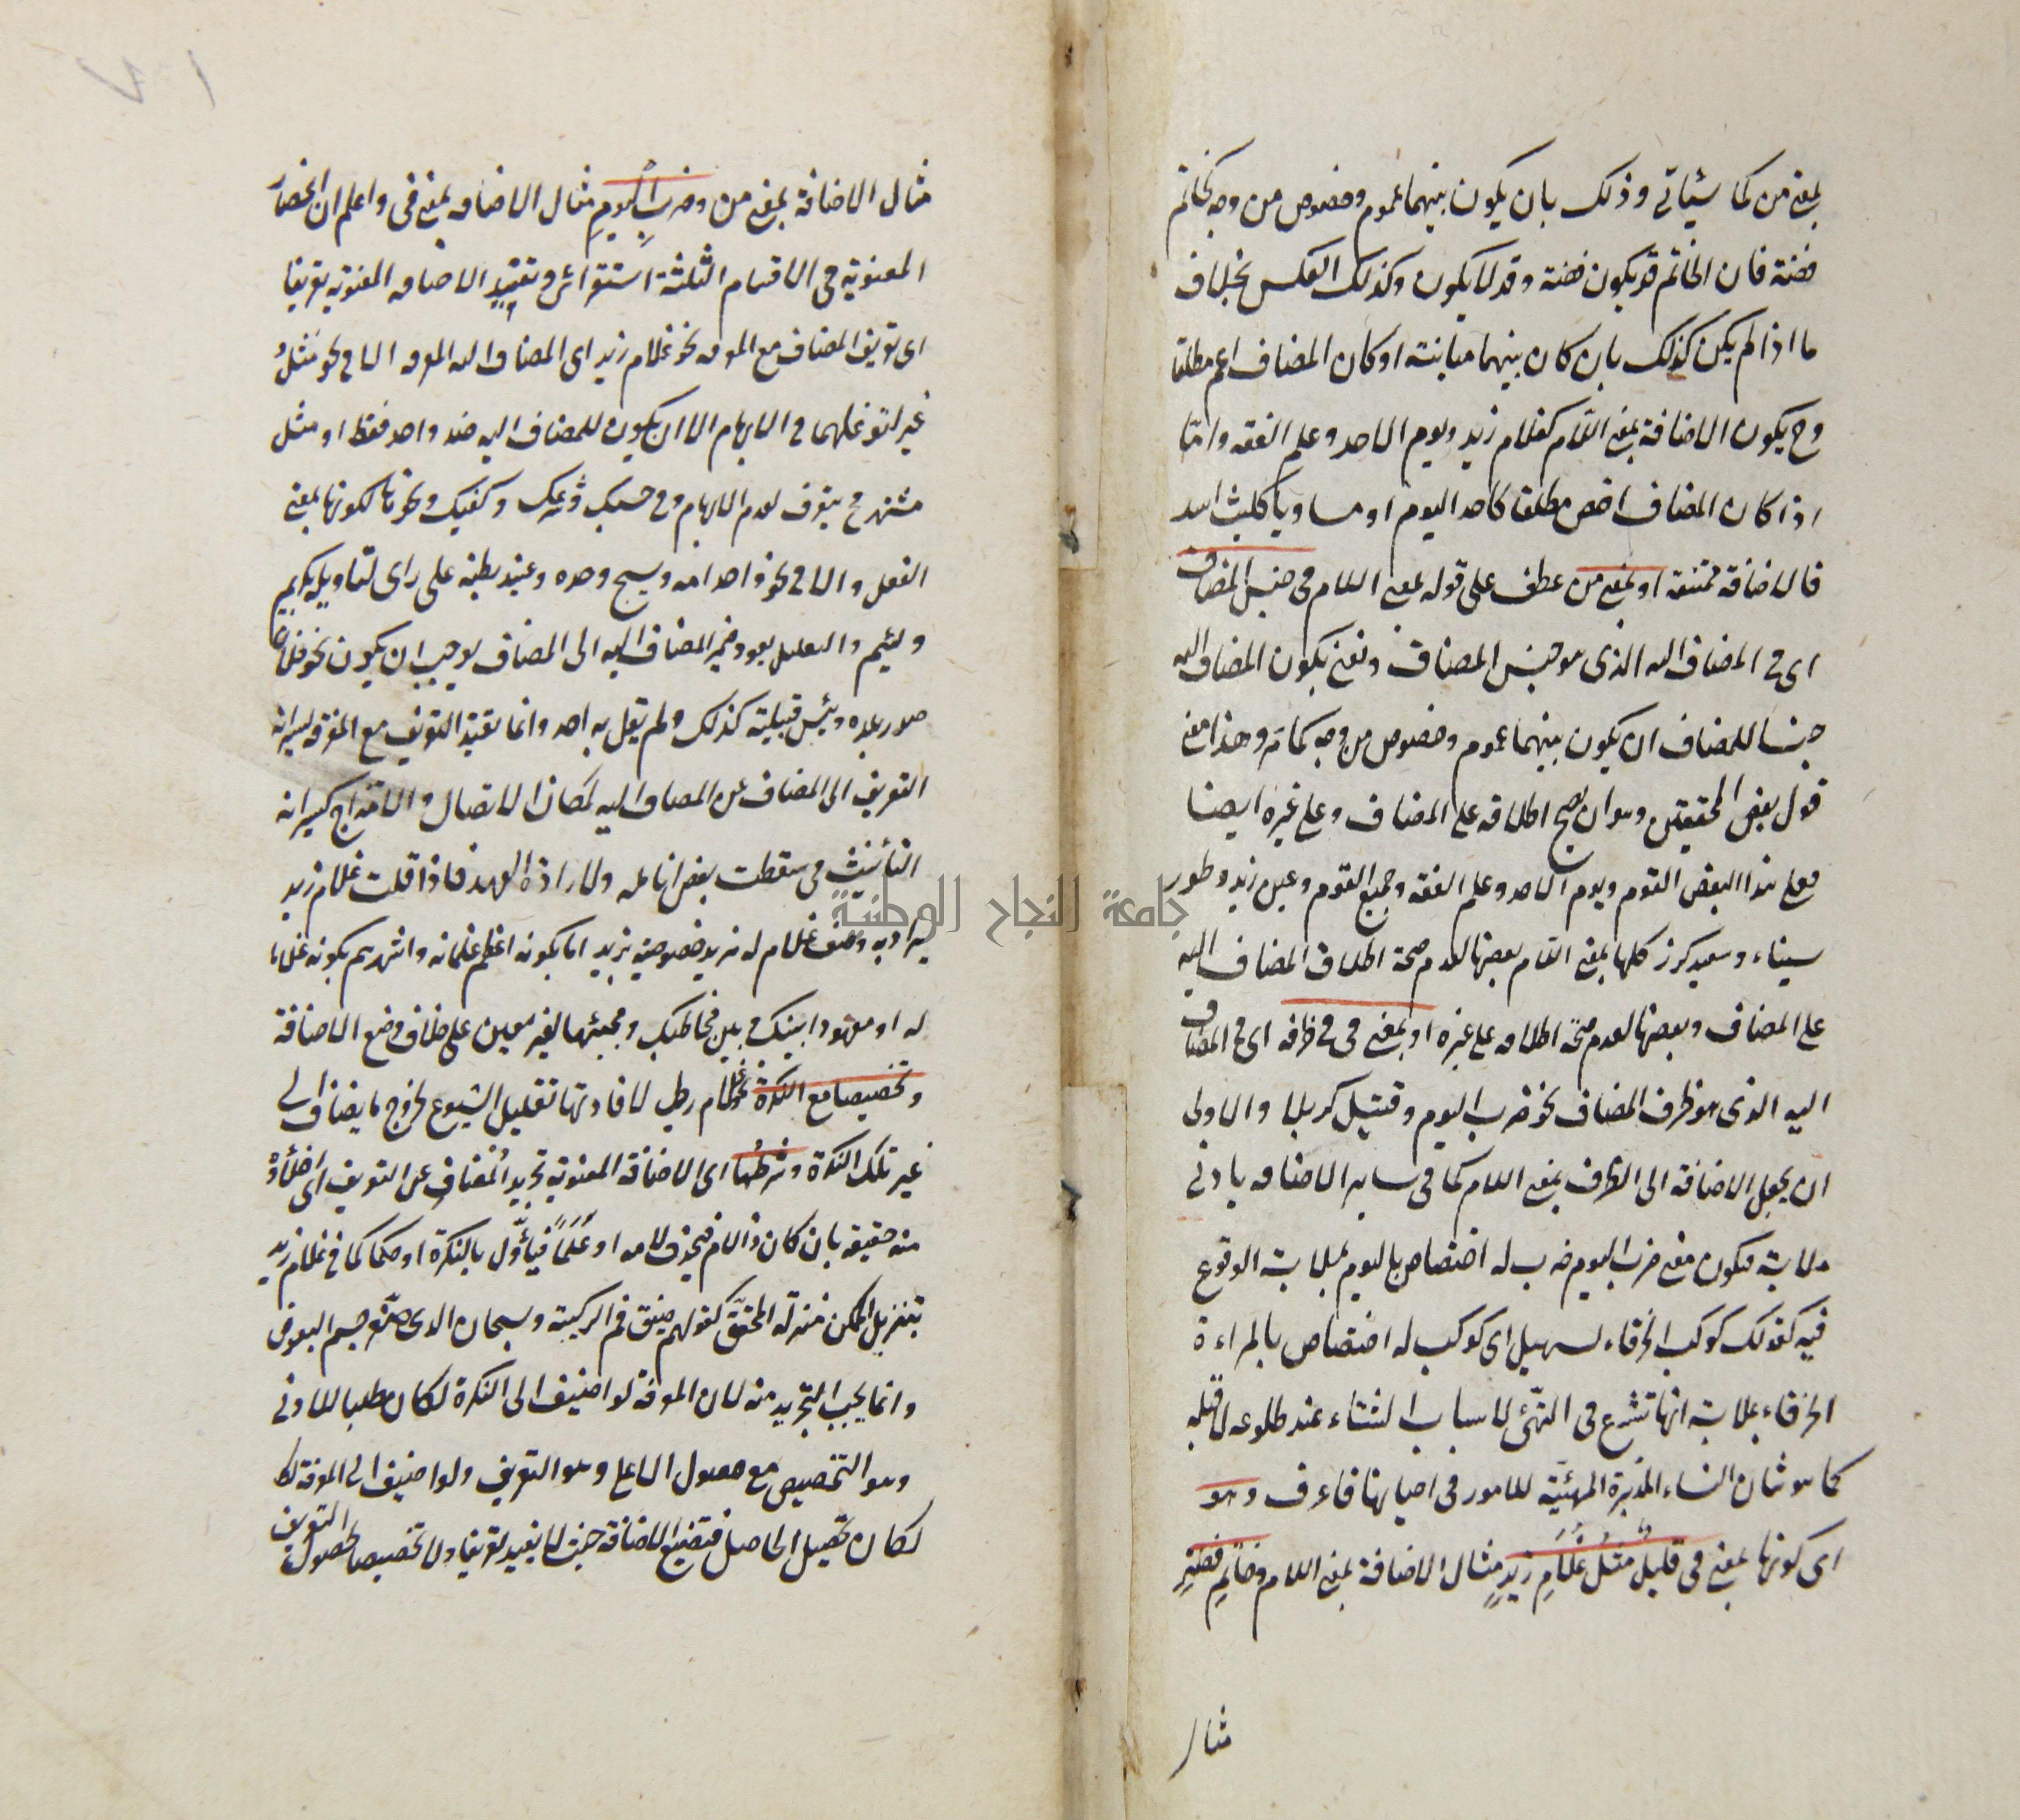 بمعنى من كما سيأتى وذلك بان يكون بينهما عموم وخصوص من وجه كخاتم
فضة فان الخاتم قد يكون فضة وقد لا يكون وكذلك العكس بخلاف
ما اذا لم يكن كذلك بان كان بينهما مباينة او كان المضاف اعم مطلقا
وح يكون الاضافة بمعنى اللام كغلام زيد ويوم الاحد وعلم الفقه واما
اذا كان المضاف اخص مطلقا كاحد اليوم او مساويا كليث اسد
فالاضافة ممتنعة او بمعنى من عطف على قوله بمعنى اللام فى جنس المضاف
اى فى المضاف اليه الذى هو جنس المضاف ونعنى بكون المضاف اليه
جنسا للمضاف ان يكون بينهما عموم وخصوص من وجه كما مر وهذا معنى
قول بعض المحققين وهو ان يصح اطلاقه على المضاف وعلى غيره ايضا
فعلى هذا بعض القوم ويوم الاحد وعلم الفقه وجميع القوم وعين زيد وطور
سيناء وسعيد كرز كلها بمعنى اللام بعضها لعدم صحة اطلاق المضاف اليه
على المضاف وبعضها لعدم صحة اطلاقه على غيره او بمعنى فى فى ظرفه اى فى المضاف
اليه الذى هو ظرف المضاف نحو ضرب اليوم وقتيل كربلا والاولى
ان يجعل الاضافة الى الظرف بمعنى اللام كما فى سائر الاضافه بادنى
ملابسة فيكون معنى ضرب اليوم ضرب له اختصاص باليوم بملابسة الوقوع
فيه كقولك كوكب الخرقاء لسهيل اى كوكب له اختصاص بالمراءة
الخرقاء بملابسة انها تشرع فى التهيئ لاسباب الشتاء عند طلوعه لا قبله
كما هو شان النساء المدبرة المهيئة للامور فى احيانها فاعرف وهو
اى كونها بمعنى فى قليل مثل غلام زيد مثال الاضافة بمعنى اللام وخاتم فضة
مثال
٧١
مثال الاضافة بمعنى من وضرب اليوم مثال الاضافه بمعنى فى واعلم ان انحصار
المعنوية فى الاقسام الثلثة استقرائى وتفيد الاضافه المعنويه تعريفا
اى تعريف المضاف مع المعرفه نحو غلام زيد اى المضاف اليه المعرفه الا فى نحو مثل
غير لتوغلهما فى الابهام الا ان يكون للمضاف اليه ضد واحد فقط او مثل
مشتهر ح يتعرف لعدم الابهام وفى حسبك وشرعك وكفيك ونحوها لكونها بمعنى
الفعل والا فى نحو واحد امه ونسيج وحده وعبد بطنه على راى لتاويل بكريم
ولئيم والتعليل بعود ضمير المضاف اليه الى المضاف يوجب ان يكون نحو فلان
صدر بلده ورئيس قبيلته كذلك ولم يقل به احد وانما تفيد التعريف مع المعرفة لسراية
التعريف الى المضاف من المضاف اليه لمكان الاتصال والامتزاج كسراية
التأنيث فى سقطت بعض انامله ولارادة العهد فاذا قلت غلام زيد
يراد به غلام له مزيد خصوصية بزيد اما بكونه اعظم غلمانه واشهرهم بكونه غلاما
له او معهودا بينك وبين مخاطبك ومجيئها لغير معين على خلاف وضع الاضافة
وتخصيصا مع النكرة نحو غلام رجل لافادتها تقليل الشيوع لخروج ما يضاف الى
غير تلك النكرة وشرطها اى الاضافة المعنوية تجريد المضاف عن التعريف اى اخلاؤه
منه حقيقة بان كان ذا لام فيحذف لامه او علما فيأول بالنكرة او حكما كما فى غلام زيد
بتنزيل الممكن منزلة المحقق كقولهم ضيق فم الركية وسبحان الذى صغر جسم البعوض
وانما يجب التجريد منه لان المعرفة لو اضيف الى النكرة لكان طلبا للادنى
وهو التخصيص مع حصول الاعلى وهو التعريف ولو اضيف الى المعرفة لكا
لكان تحصيل الحاصل فتضيع الاضافة حينئذ لا يفيد تعريفا ولا تخصيصا لحصول التعريف
جامعة النجاح الوطنية